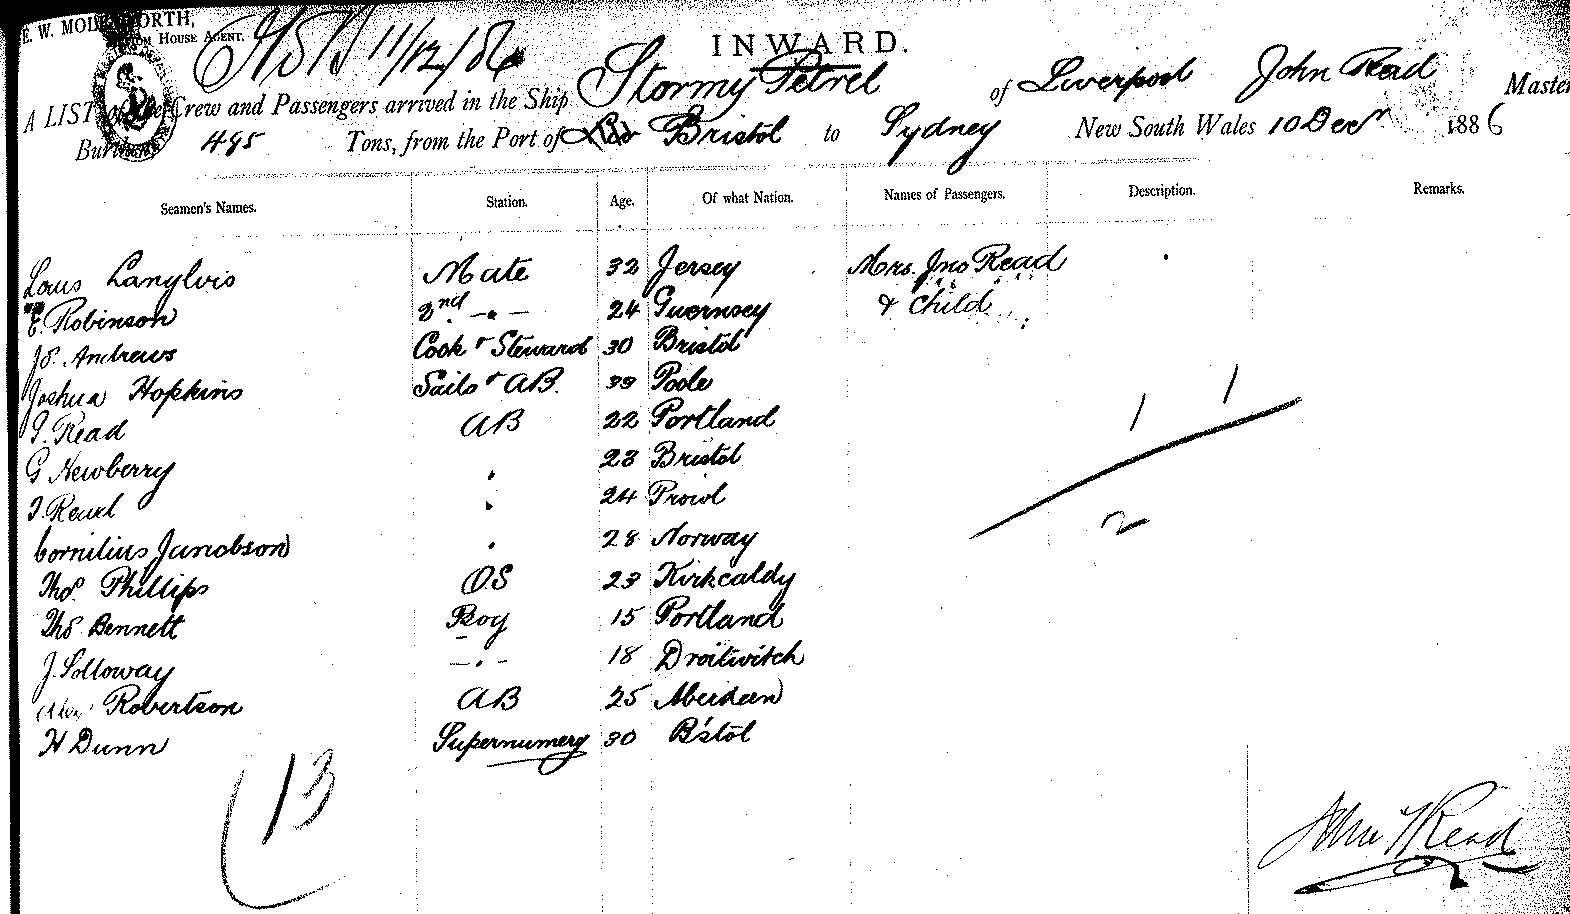 E. W. MOLESWORTH,
Custom House Agent.
11/12/86
INWARD.
A LIST of the Crew and Passengers arrived in the Ship Stormy Petrel of Liverpool John Read Master
Burthen 485 Tons, from the Port of Bristol to Sydney New South Wales 10 Decr 1886
Seamen's Names. Station. Age. Of what Nation. Names of Passengers. Description. Remarks.
Louis Langlois Mate 32 Jersey Mrs. Jno Read
E. Robinson 2nd -"- 24 Guernsey & Child
Js. Andrews Cook & Steward 30 Bristol
Joshua Hopkins Sails & AB. 39 Poole
G. Read AB 22 Portland
G Newberry " 23 Bristol
Read " 24
Cornilius Jacobson " 28 Norway
Thos. Phillips OS 23 Kirkcaldy
Thos Bennett Boy 15 Portland
J. Solloway -"- 18 Droitwitch
Alexr Robertson AB 25 Aberdeen
H Dunn Supernumery 30 B'stol
1 1
2
13
John Read